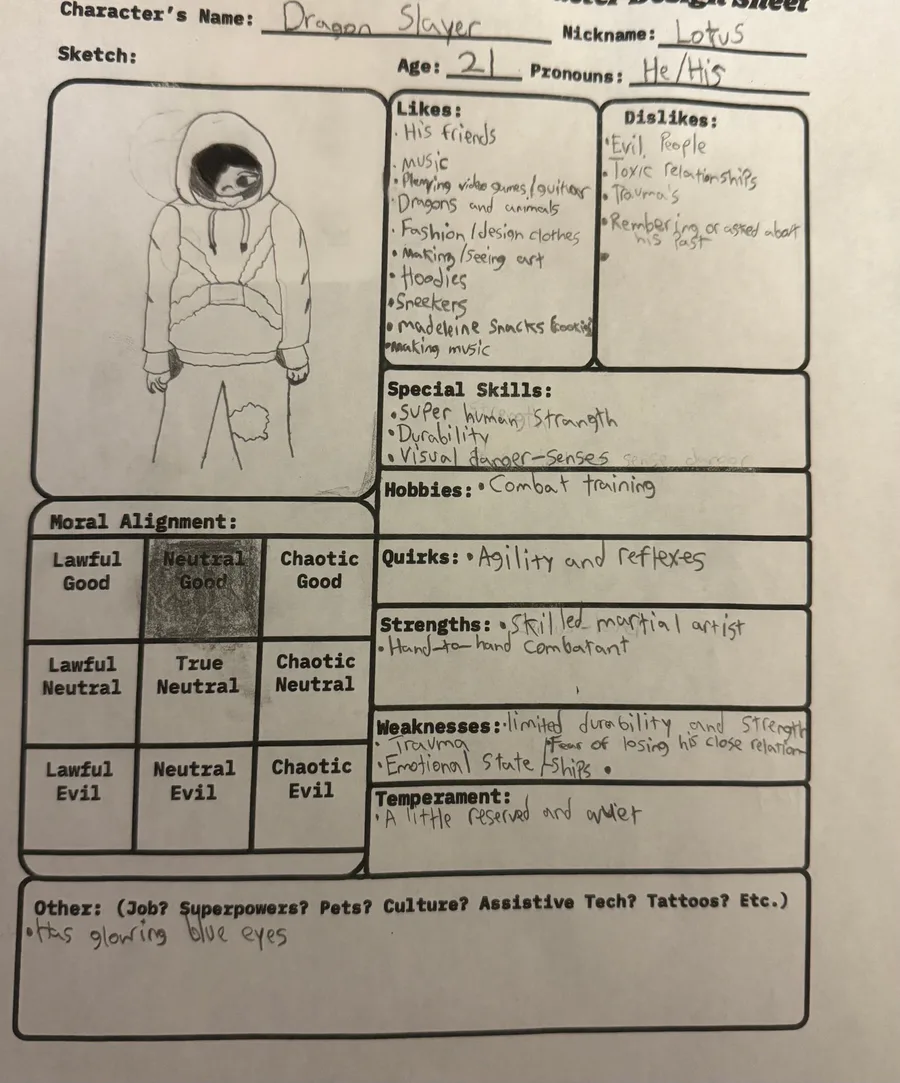 Design Sheet
Character's Name: Dragon Slayer
Nickname: Lotus
Sketch:
Age: 21 Pronouns: He/His
Likes:
• His friends
• music
• Playing video games/guitar
• Dragons and animals
• Fashion/design clothes
• Making/seeing art
• Hoodies
• Sneekers
• madeleine snacks (cookie)
• making music
Dislikes:
• Evil People
• Toxic relationships
• Trauma's
• Rembering or asked about
his past
•
Special Skills:
• Super human strangth
• Durability
• Visual danger-senses
Hobbies: • Combat training
Quirks: • Agility and reflexes
Strengths: • Skilled martial artist
• Hand-to-hand combatant
Weaknesses: • limited durability and strength
• Trauma
• Emotional State
• Fear of losing his close relation-
ships •
Temperament:
• A little reserved and quiet
Moral Alignment:
Lawful
Good
Neutral
Good
Chaotic
Good
Lawful
Neutral
True
Neutral
Chaotic
Neutral
Lawful
Evil
Neutral
Evil
Chaotic
Evil
Other: (Job? Superpowers? Pets? Culture? Assistive Tech? Tattoos? Etc.)
• Has glowing blue eyes